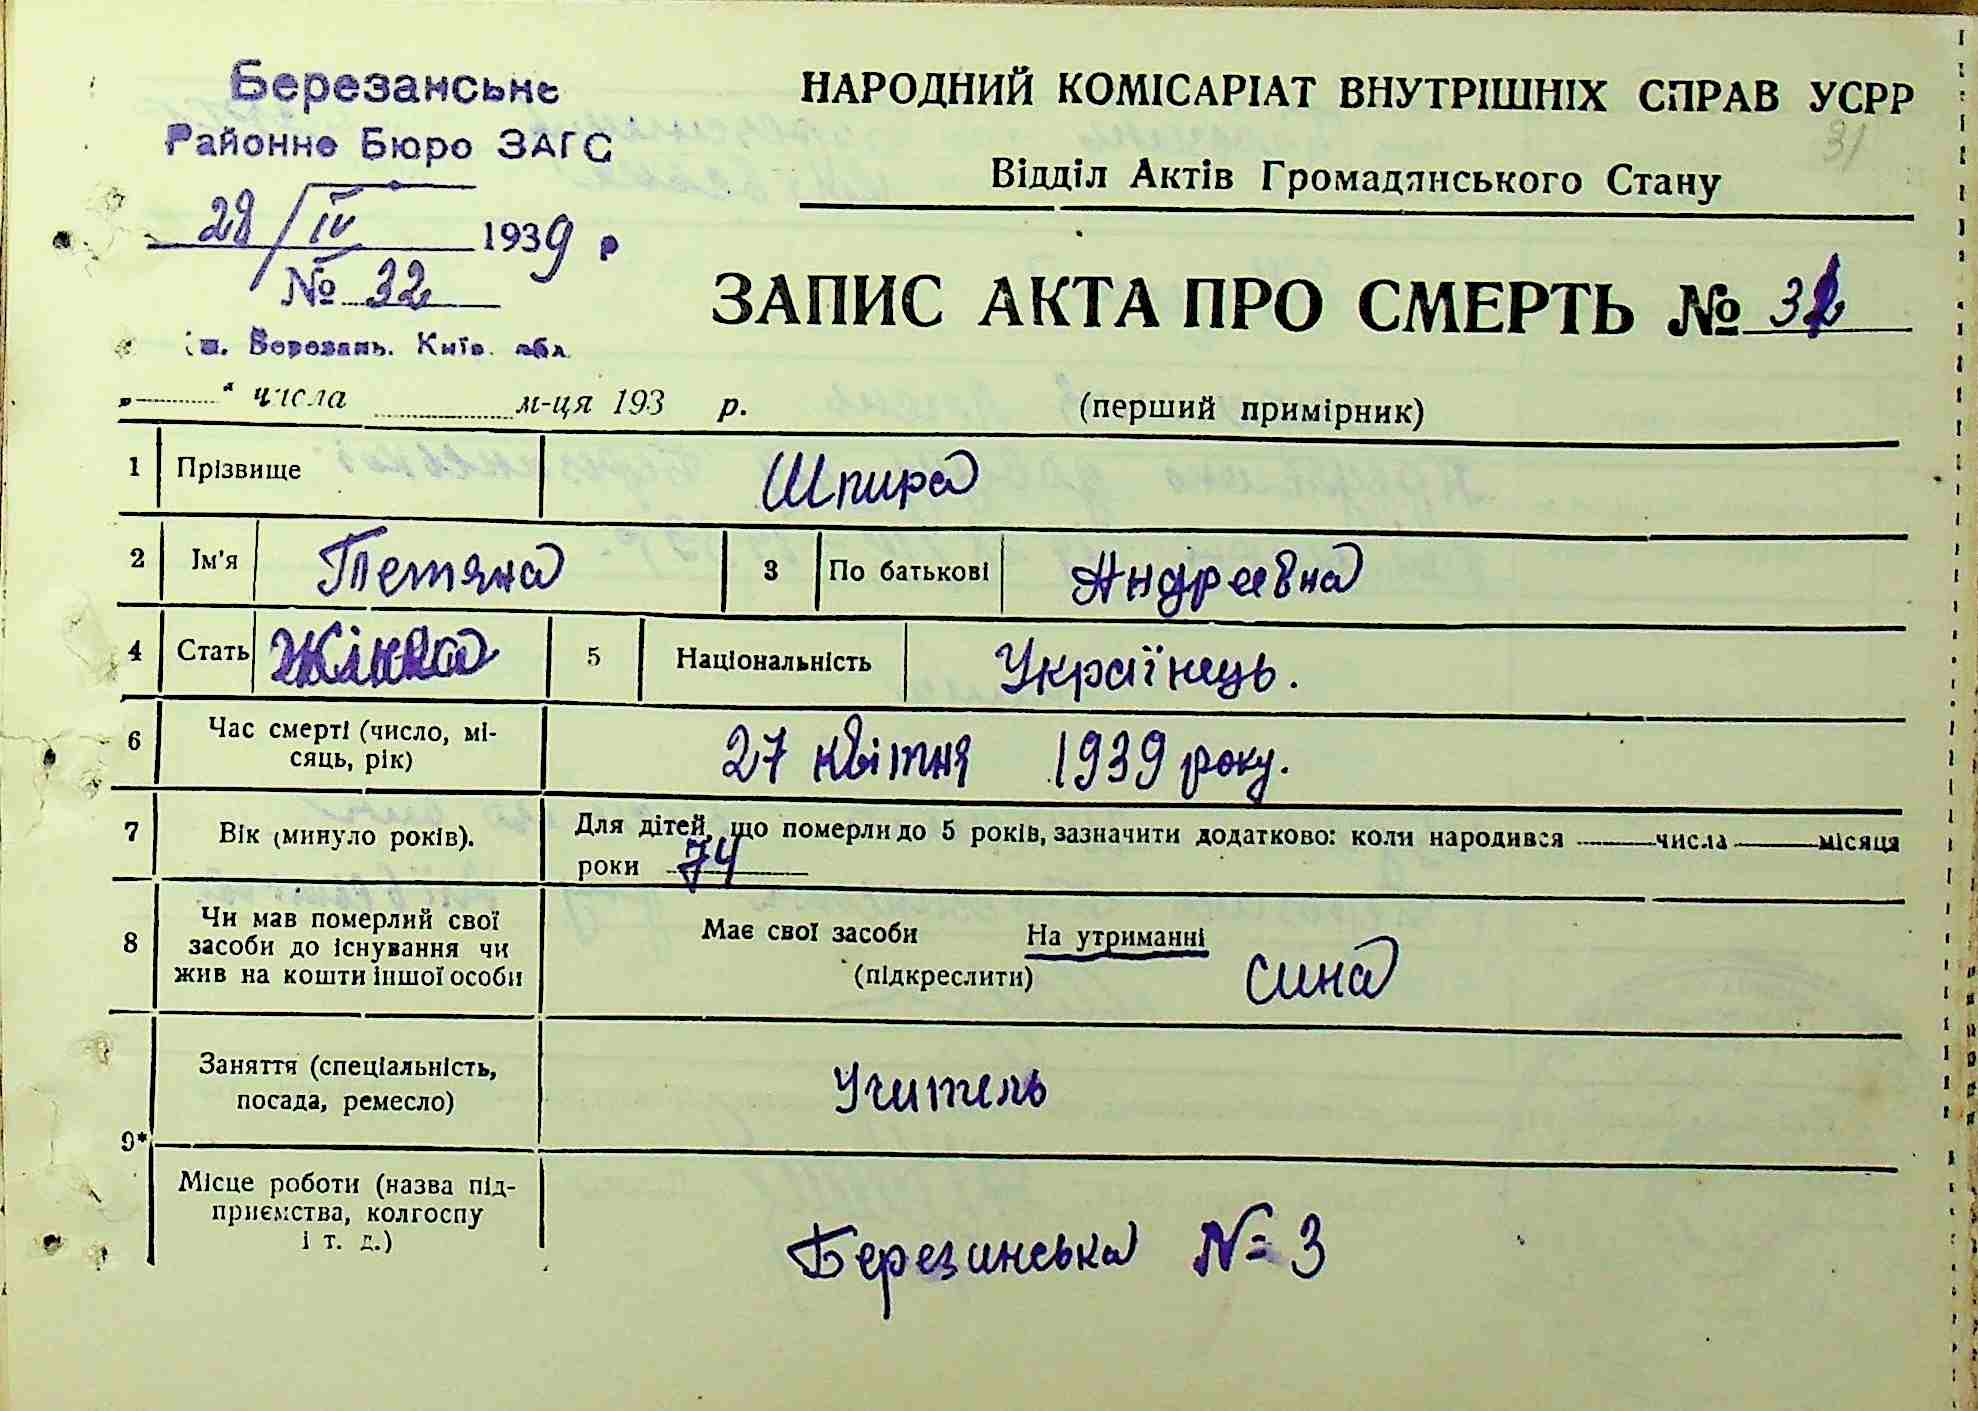 Березанське
Районне Бюро ЗАГС
28/IV 1939 р
№ 32
ш. Березань. Київ. обл.
НАРОДНИЙ КОМІСАРІАТ ВНУТРІШНІХ СПРАВ УСРР
31
Відділ Актів Громадянського Стану
ЗАПИС АКТА ПРО СМЕРТЬ № 32
„ “ числа м-ця 193 р. (перший примірник)
1 Прізвище Шпира
2 Ім'я Тетяна 3 По батькові Андреевна
4 Стать Жінка 5 Національність Українець.
6 Час смерті (число, мі-
сяць, рік) 27 квітня 1939 року.
7 Вік (минуло років). Для дітей, що померли до 5 років, зазначити додатково: коли народився числа місяця
роки 74
8 Чи мав померлий свої
засоби до існування чи
жив на кошти іншої особи
Має свої засоби На утриманні
(підкреслити) сина
9* Заняття (спеціальність,
посада, ремесло) Учитель
Місце роботи (назва під-
приємства, колгоспу
і т. д.) Березинська № 3